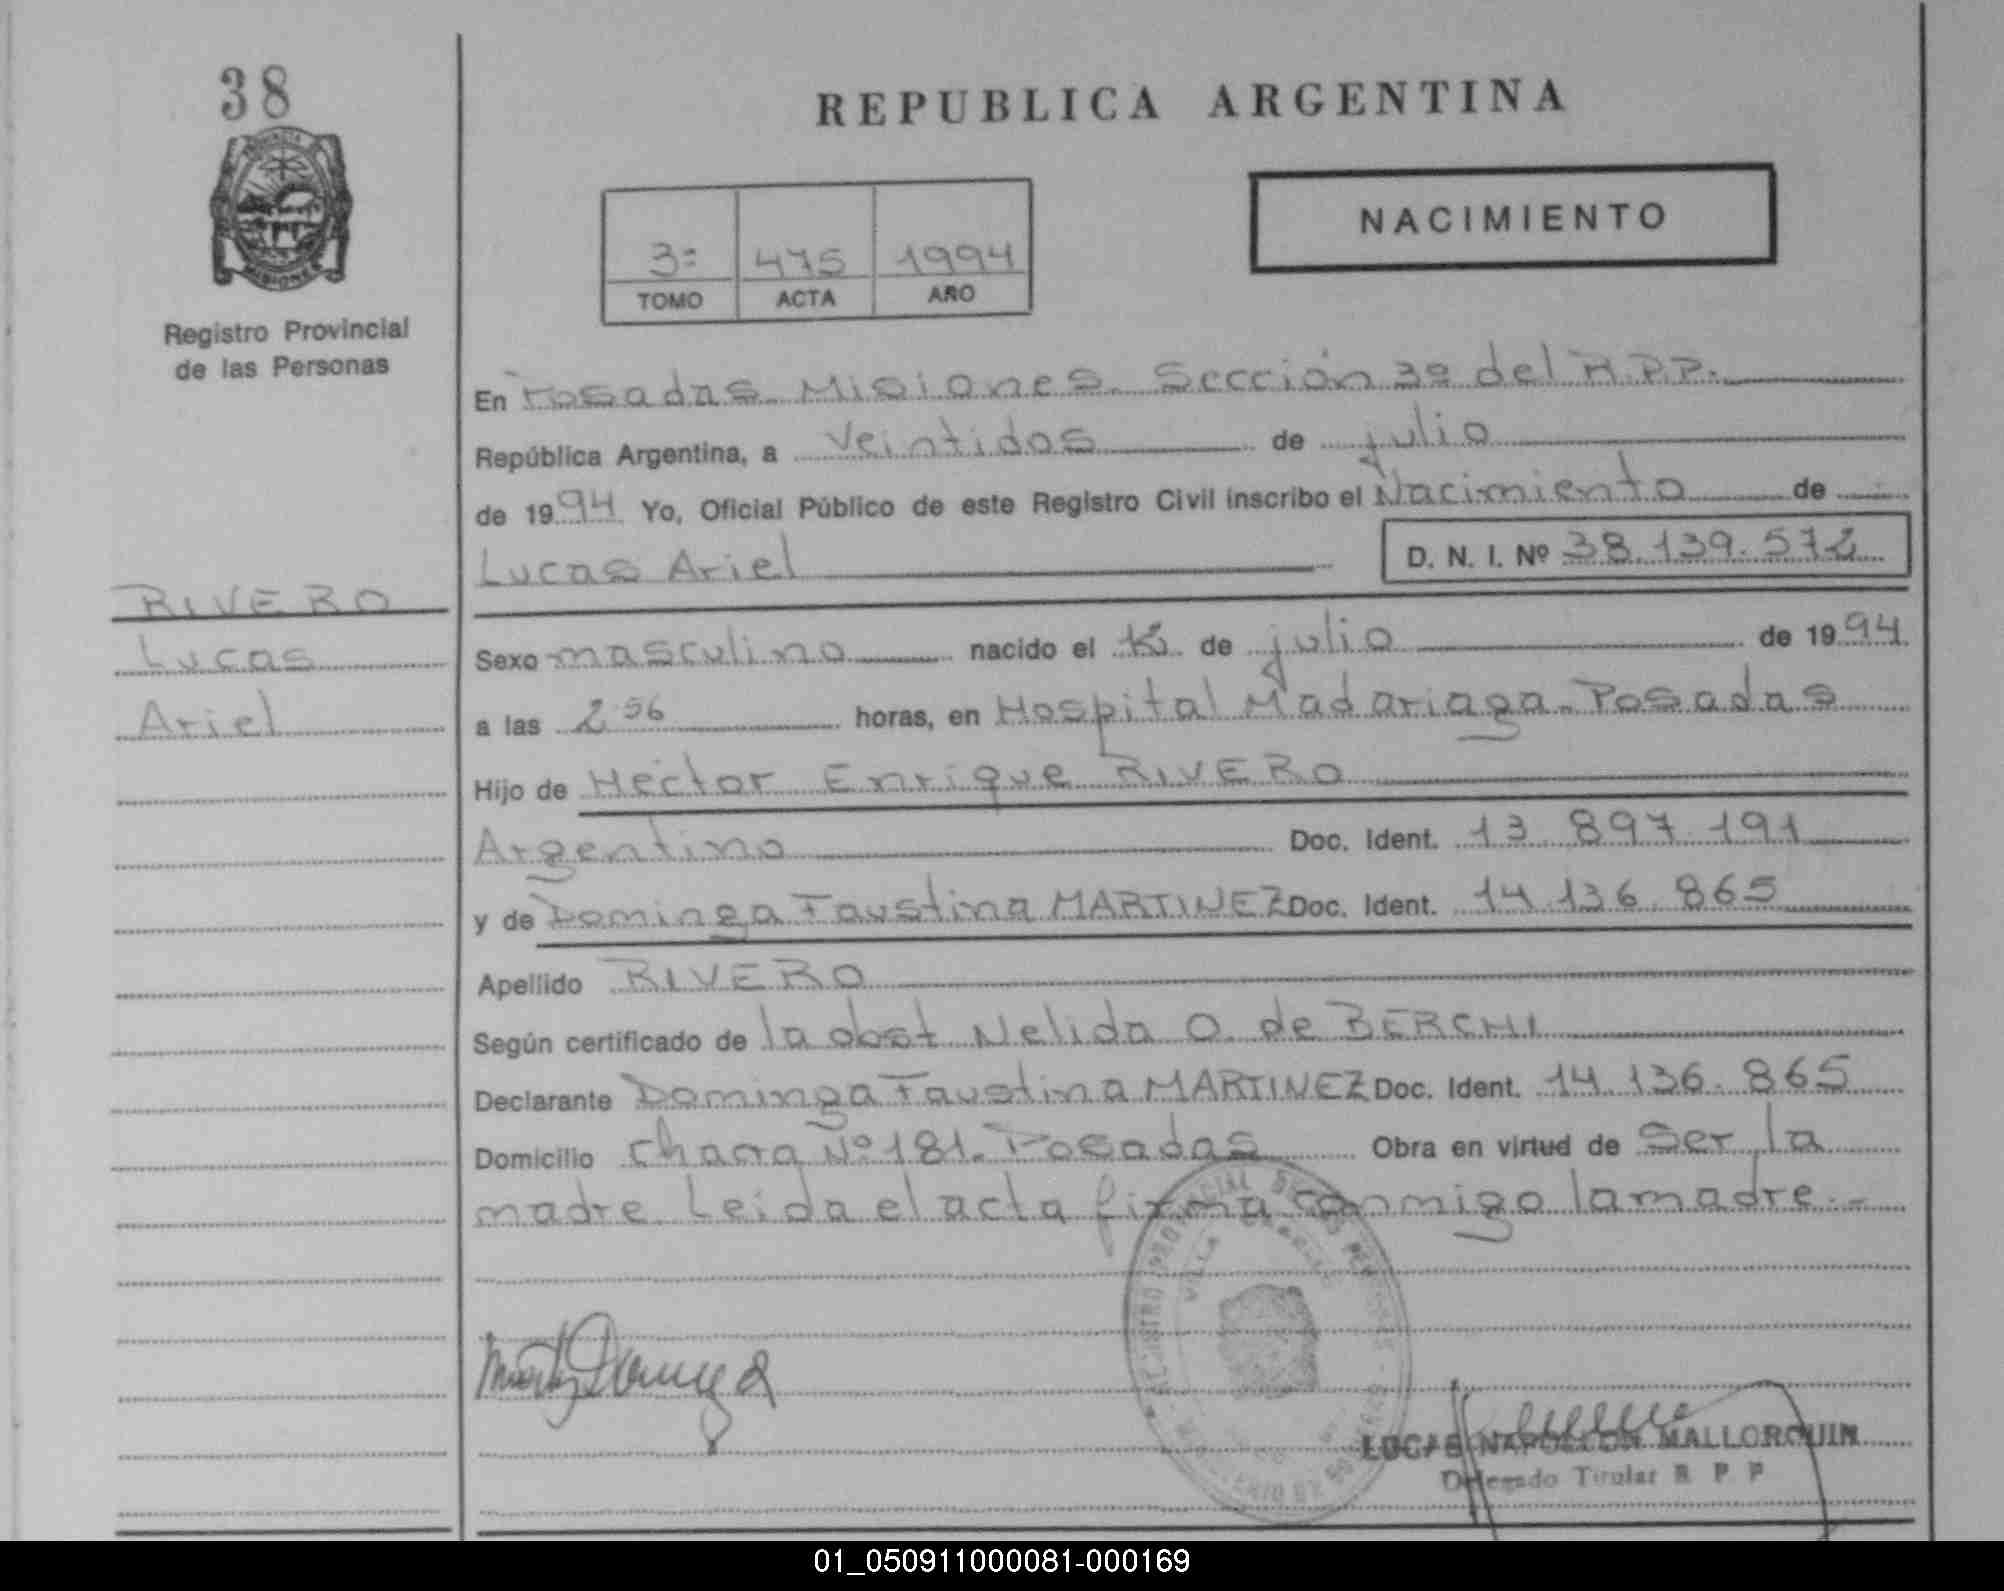 38
REPUBLICA ARGENTINA
NACIMIENTO
3º 475 1994
TOMO ACTA AÑO
Registro Provincial
de las Personas
En Posadas Misiones. Sección 3º del R.P.P.
República Argentina, a veintidos de julio
de 1994 Yo, Oficial Público de este Registro Civil inscribo el Nacimiento de
Lucas Ariel D. N. I. Nº 38.139.572
RIVERO
Lucas
Ariel
Sexo masculino nacido el de julio de 1994
a las 2 56 horas, en Hospital Madariaga. Posadas
Hijo de Hector Enrique RIVERO
Argentino Doc. Ident. 13 897 191
y de Dominga Faustina MARTINEZ Doc. Ident. 14.136.865
Apellido RIVERO
Según certificado de la obst Nelida O. de BERCHI
Declarante Dominga Faustina MARTINEZ Doc. Ident. 14.136.865
Domicilio Chacra Nº 181. Posadas Obra en virtud de Ser la
madre Leida el acta firma conmigo la madre.-
REGISTRO PROVINCIAL DE LAS PERSONAS
VILLA
LUCAS NAPOLEON MALLORQUIN
Delegado Titular R P P
01_050911000081-000169